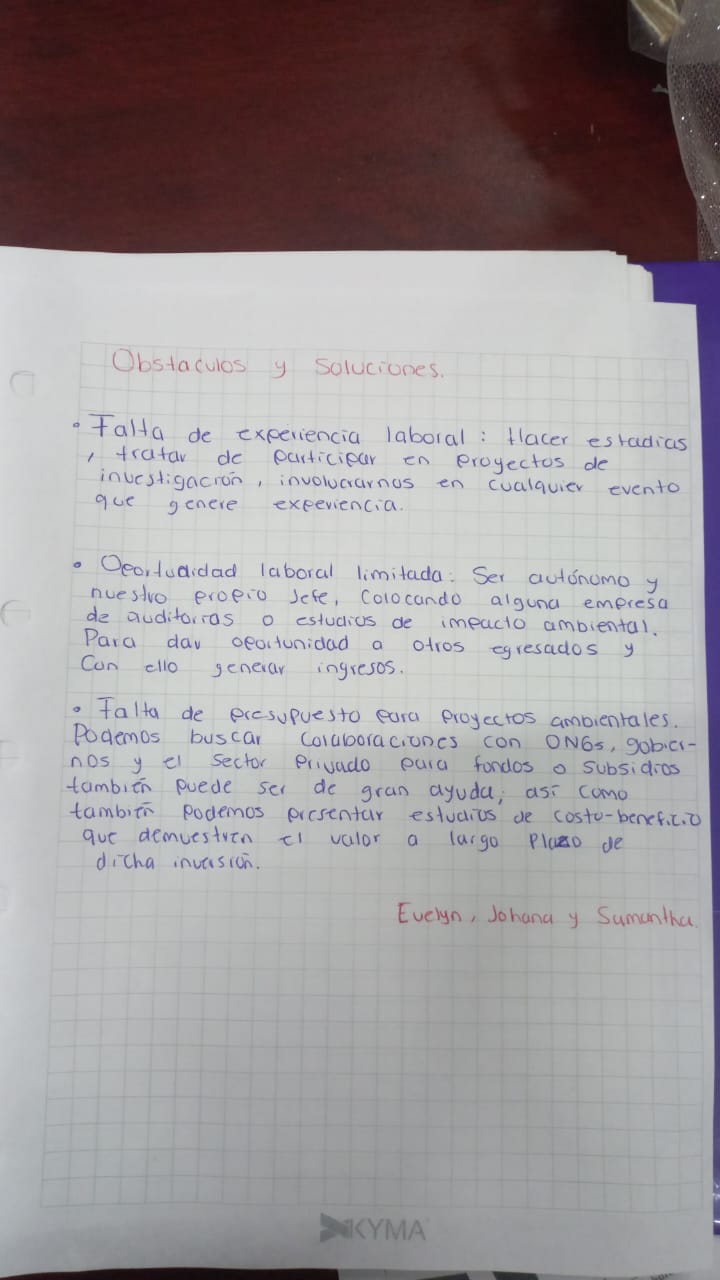 Obstaculos y Soluciones.
• Falta de experiencia laboral: Hacer estadias
, tratar de participar en proyectos de
investigación, involucrarnos en cualquier evento
que genere experiencia.
• Oportudidad laboral limitada: Ser autónomo y
nuestro propio Jefe, Colocando alguna empresa
de auditorias o estudios de impacto ambiental.
Para dar oportunidad a otros egresados y
Con ello generar ingresos.
• Falta de presupuesto para proyectos ambientales.
Podemos buscar Colaboraciones con ONGs, gobier-
nos y el Sector Privado para fondos o subsidios
también puede ser de gran ayuda; así como
también podemos presentar estudios de costo-beneficio
que demuestren el valor a largo Plazo de
dicha inversión.
Evelyn, Johana y Samantha.
KYMA